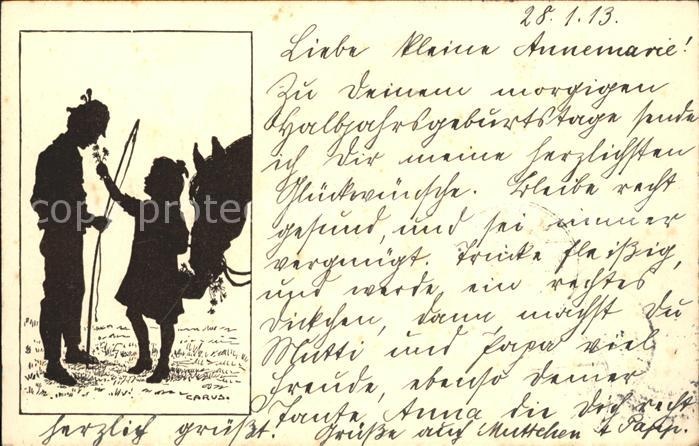 28.1.13.
Liebe kleine Annemarie!
Zu Deinem morgigen
Halbjahrsgeburtstage sende
ich Dir meine herzlichsten
Glückwünsche. Bleibe recht
gesund, und sei immer
vergnügt. Trinke fleißig,
und werde ein rechtes
Dickchen, dann machst Du
Mutti und Papa viel
Freude, ebenso Deiner
Tante Anna die Dich recht
herzlich grüßt! Grüße auch Muttchen + Papp.
CARUS.
copyright protected